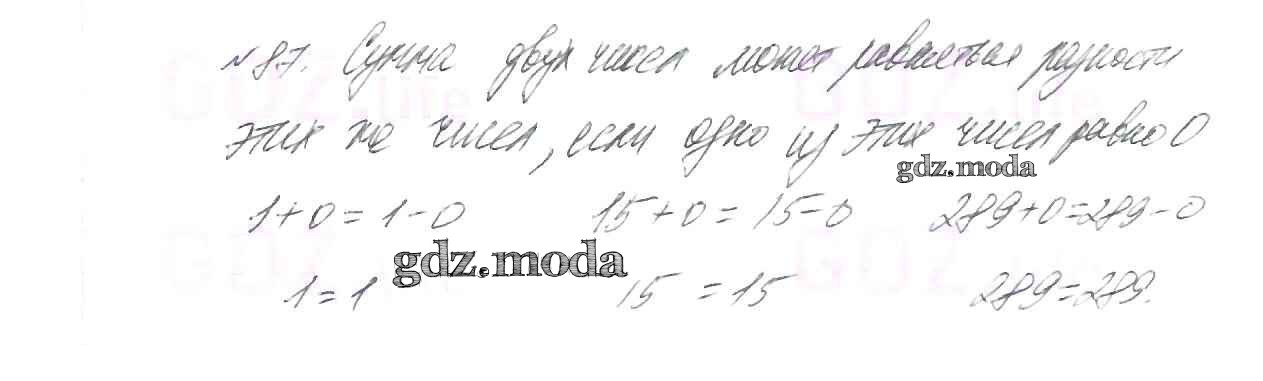 №87. Сумма двух чисел может равняться разности
этих же чисел, если одно из этих чисел равно 0
gdz.moda
1+0=1-0 15+0=15-0 289+0=289-0
gdz.moda
1=1 15=15 289=289.